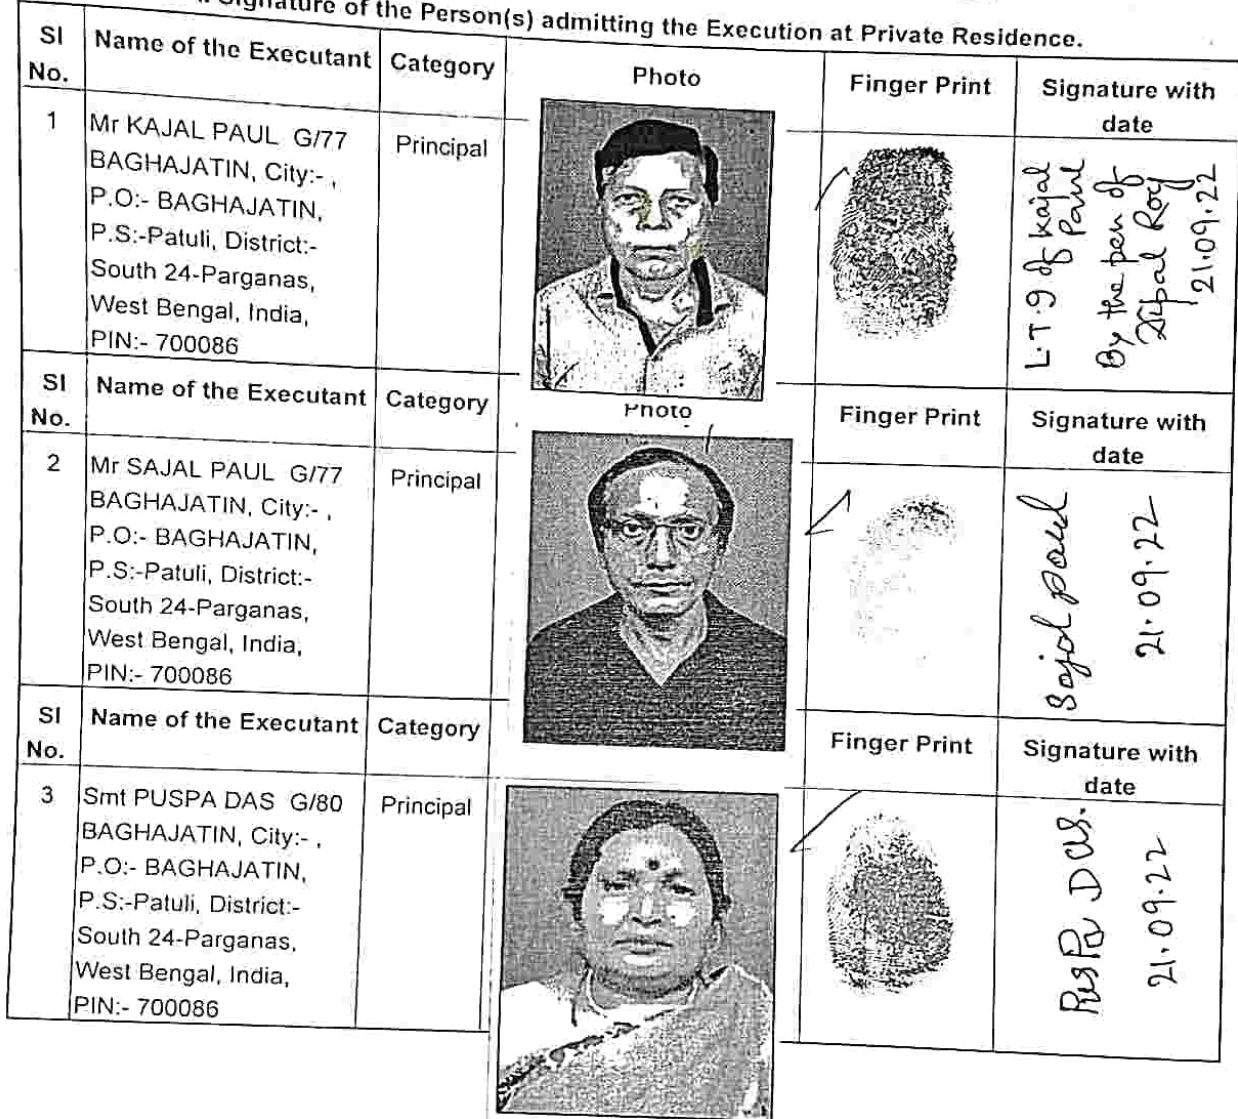 Signature of the Person(s) admitting the Execution at Private Residence.
Sl No. Name of the Executant Category Photo Finger Print Signature with date
1 Mr KAJAL PAUL G/77 Principal
BAGHAJATIN, City:- ,
P.O:- BAGHAJATIN,
P.S:-Patuli, District:-
South 24-Parganas,
West Bengal, India,
PIN:- 700086
L.T.g of Kajal
Paul
By the pen of
Roy
21.09.22
Sl No. Name of the Executant Category Photo Finger Print Signature with date
2 Mr SAJAL PAUL G/77 Principal
BAGHAJATIN, City:- ,
P.O:- BAGHAJATIN,
P.S:-Patuli, District:-
South 24-Parganas,
West Bengal, India,
PIN:- 700086
Sajal paul
21.09.22
Sl No. Name of the Executant Category Finger Print Signature with date
3 Smt PUSPA DAS G/80 Principal
BAGHAJATIN, City:- ,
P.O:- BAGHAJATIN,
P.S:-Patuli, District:-
South 24-Parganas,
West Bengal, India,
PIN:- 700086
Das.
21.09.22